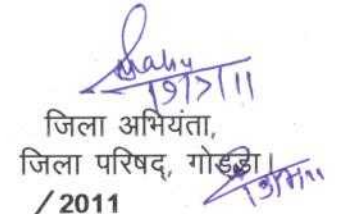 19/7/11
जिला अभियंता,
जिला परिषद्, गोड्डा।
/2011